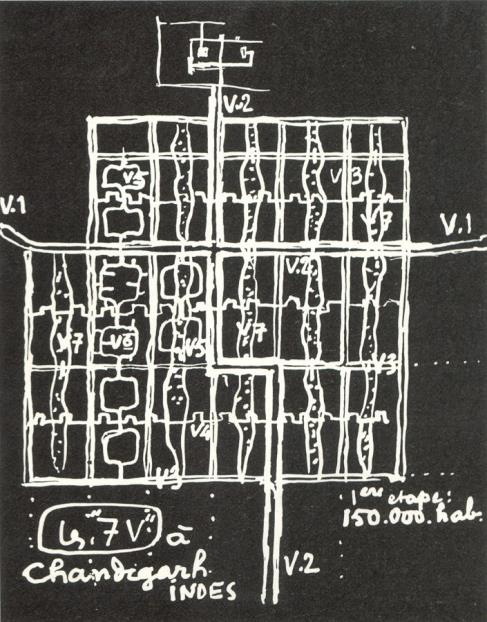 V.2
V5
V3
V.1
V7
V.1
V.2
V7
V6
V5
V7
V3
V4
V3
1ère etape:
150.000.hab.
les "7 V" à
Chandigarh
INDES
V.2